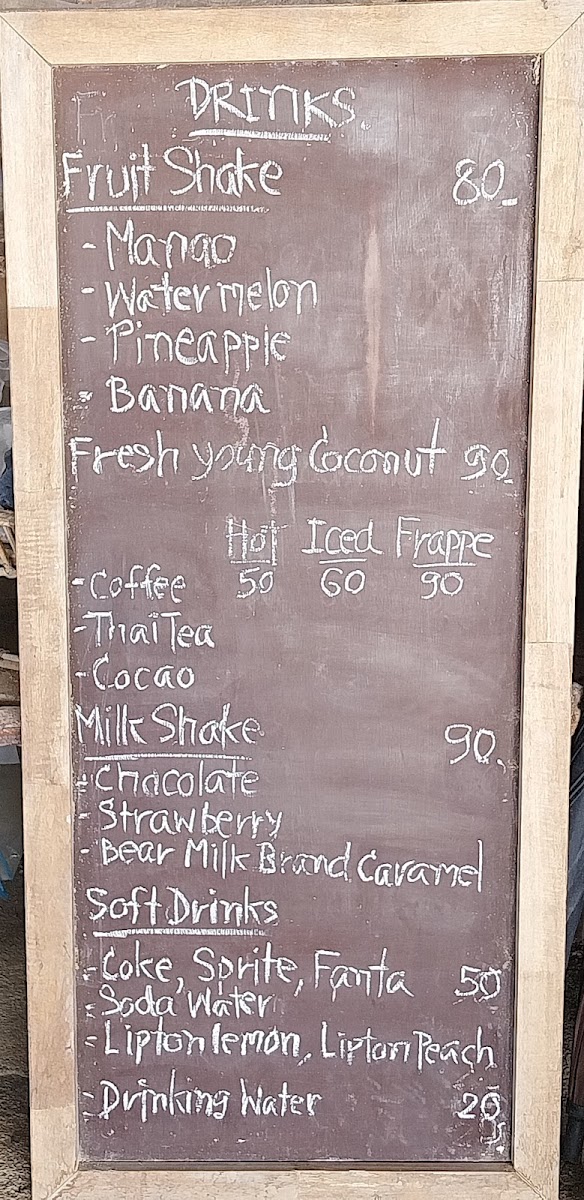 DRINKS
Fruit Shake 80.-
- Mango
- Water melon
- Pineapple
- Banana
Fresh young Coconut 90.
Hot Iced Frappe
- Coffee 50 60 90
- Thai Tea
- Cocao
Milk Shake 90.
- Chocolate
- Strawberry
- Bear Milk Brand Caramel
Soft Drinks
- Coke, Sprite, Fanta 50
- Soda Water
- Lipton lemon, Lipton Peach
- Drinking Water 20